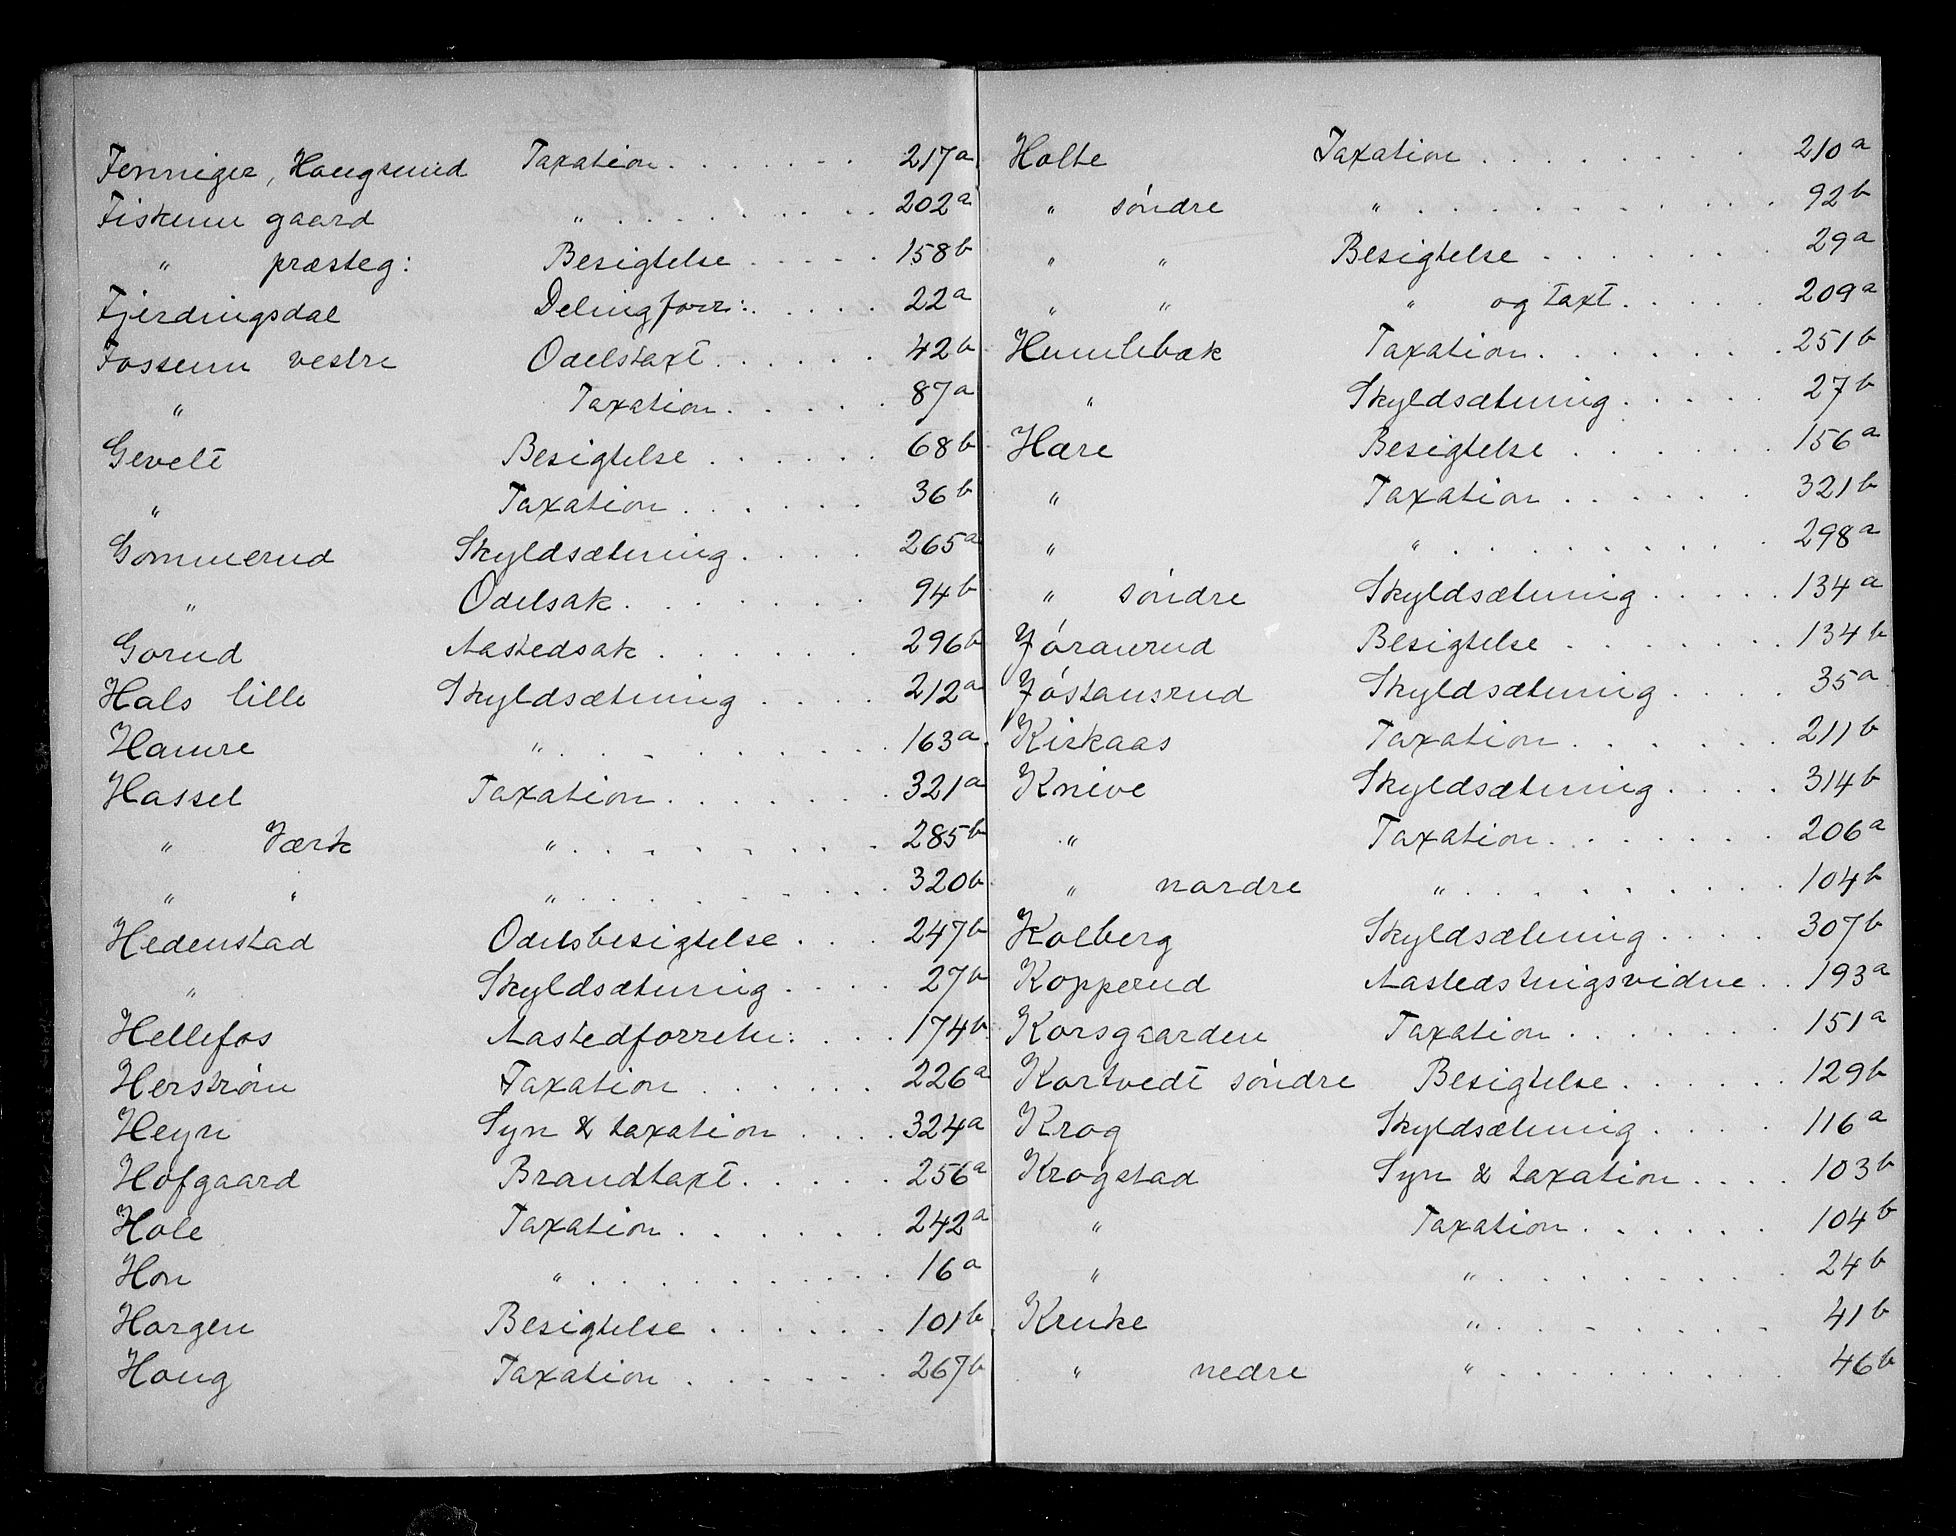 Fenniger, Hougsund Taxation . . . . . . 217a
Fiskum gaard " . . . . . . . . 202a
" præsteg: Besigtelse . . . . . 158b
Fjerdingsdal Delingforr: . . . . . 22a
Fossum vestre Odelstaxt . . . . . 42b
" Taxation . . . . . 87a
Gevelt Besigtelse . . . . . . 68b
" Taxation . . . . . . 36b
Gommerud Skyldsætning . . . . 265a
" Odelsak . . . . . . . 94b
Gorud Aastedsak . . . . . . 296b
Hals lille Skyldsætning . . . . 212a
Hamre " . . . . . . . . 163a
Hassel Taxation . . . . . . . 321a
" Værk " . . . . . . . . 285b
" " " . . . . . . . . 320b
Hedenstad Odelsbesigtelse . . . 247b
" Skyldsætning . . . . 27b
Hellefos Aastedforretn: . . . 174b
Herstrøm Taxation . . . . . . 226a
Heyn Syn & taxation . . . . 324a
Hofgaard Brandtaxt . . . . . 256a
Hole Taxation . . . . . . 242a
Hon " . . . . . . . . 16a
Horgen Besigtelse . . . . . . 101b
Houg Taxation . . . . . . 267b
Holte Taxation . . . . . . . . 210a
" søndre " . . . . . . . . . . 92b
" " Besigtelse . . . . . . 29a
" " " og taxt . . . . . 209a
Humlebæk Taxation . . . . . . 251b
" Skyldsætning . . . . . 27b
Hære Besigtelse . . . . . . 156a
" Taxation . . . . . . 321b
" " . . . . . . . . . 298a
" søndre Skyldsætning . . . . . 134a
Jøranrud Besigtelse . . . . . . . 134b
Jøstansrud Skyldsætning . . . . 35a
Kirkaas Taxation . . . . . . 211b
Knive Skyldsætning . . . . 314b
" Taxation . . . . . . . 206a
" nordre " . . . . . . . . 104b
Kolberg Skyldsætning . . . . 307b
Kopperud Aastedstingsvidne . . 193a
Korsgaarden Taxation . . . . . . 151a
Kortvedt søndre Besigtelse . . . . . . 129b
Krog Skyldsætning . . . . 116a
Krogstad Syn & taxation . . . . 103b
" Taxation . . . . . . 104b
" " . . . . . . . . 24b
Kruke " . . . . . . . . 41b
" nedre " . . . . . . . . 46b